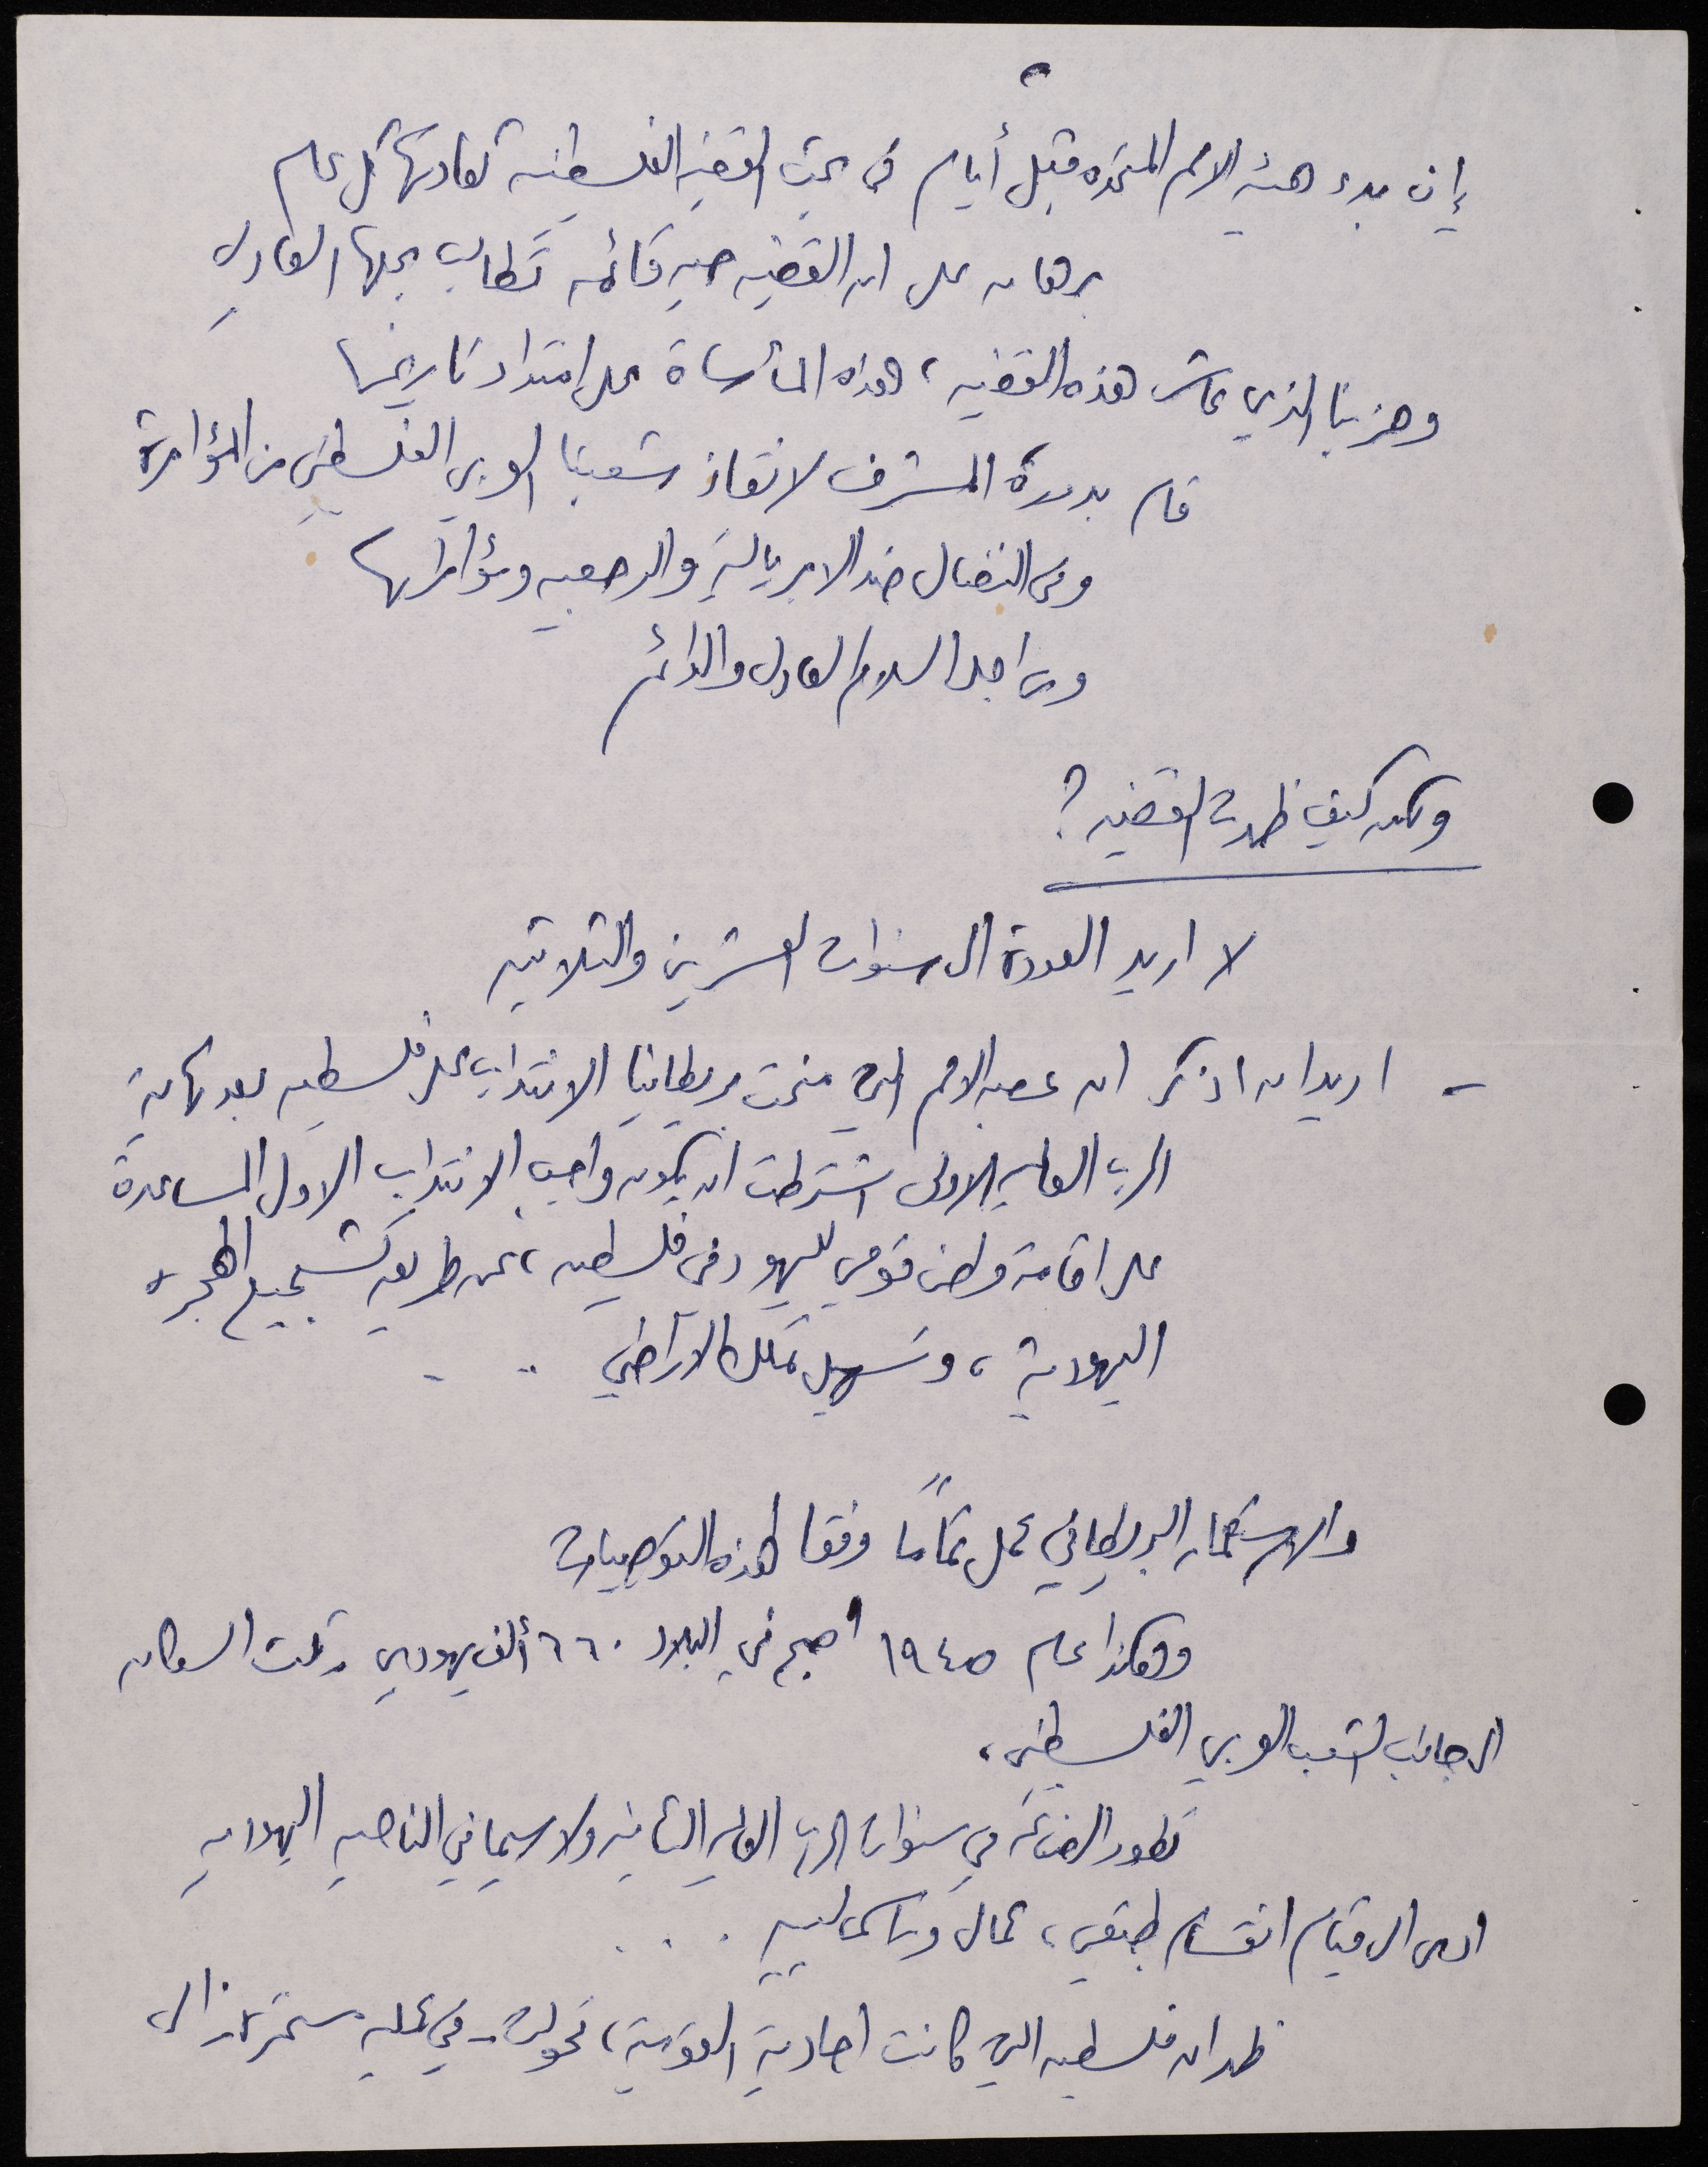 ٢
إن بدء هيئة الامم المتحده قبل أيام في بحث القضية الفلسطينية كعادتها كل عام
برهان على ان القضيه حيه قائمه تطالب بحلها العادل
وحزبنا الذي عاش هذه القضيه، هذه المأساة على امتداد تاريخها
قام بدوره المشرف لانقاذ شعبنا العربي الفلسطيني من المؤامرة
وفي النضال ضد الامبريالية والرجعيه ومؤامراتها
ومن اجل السلام العادل والدائم
ولكن كيف ظهرت القضيه؟
لا اريد العودة الى سنوات العشرين والثلاثين
- اريد ان اذكر ان عصبة الامم التي منحت بريطانيا الانتداب على فلسطين بعد نهاية
الحرب العالميه الاولى اشترطت ان يكون واجب الانتداب الاول المساعدة
على اقامة وطن قومي لليهود في فلسطين، عن طريق تشجيع الهجره
اليهودية، وتسهيل تملك الاراضي . . .
والاستعمار البريطاني عمل تماماً وفقا لهذه التوصيات
وهكذا عام ١٩٤٥ اصبح في البلاد ٦٦٠ ألف يهودي وثلث السكان
الى جانب الشعب العربي الفلسطيني،
تطور الصناعة في سنوات الحرب العالميه الثانيه ولا سيما في الناحيه اليهوديه
ادى الى قيام انقسام طبقي، عمال ورأسماليين . . .
ظهر ان فلسطين التي كانت احادية القومية، تحولت - في عمليه مستمره الى